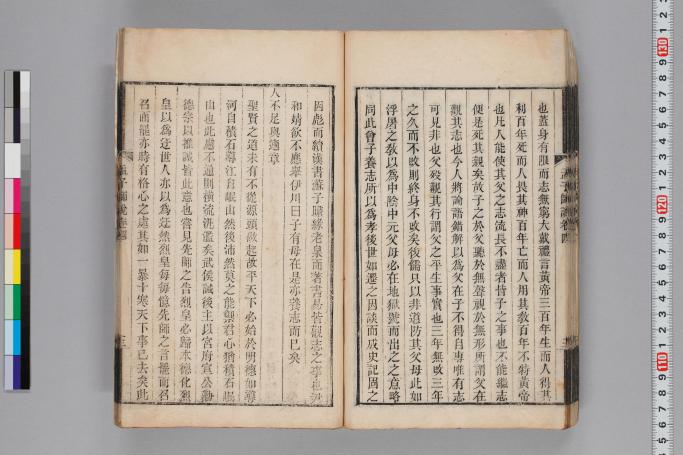 也蓋身有限而志無窮大戴禮言黃帝三百年生而人得其
利百年死而人畏其神百年亡而人用其教百年不特黃帝
也凡人能使其父之志流長不盡者恃子之事也不能繼志
便是死其親矣故子之於父聽於無聲視於無形所謂父在
觀其志也今人將論語錯解以為父在子不得自專唯有志
可見非也父歿觀其行謂父之平生事實也三年無改三年
之久而不改則終身不改矣後儒只以非道防其父母此如
浮屠之敎以為中陰中元父母必在地獄號而出之之意略
同此曾子養志所以為孝後世如遷之因談而成史記固之
因彪而續漢書蘇子瞻緣老泉而著書易皆觀志之事也
和靖欲不應舉伊川曰子有母在是亦養志而已矣
人不足與適章
聖賢之道未有不從源頭做起故平天下必始於明德如導
河自積石導江自岷山然後沛然莫之能禦君心猶積石岷
山也此處不通則橫流汎濫矣武侯誠後主以宮府宣公勸
德宗以推誠皆此意也嘗見先師之告烈皇必歸本德化烈
皇以為迂世人亦以為迂然烈皇每每憶先師之言罷而召
召而罷亦時有格心之處其如一暴十寒天下事已去矣此